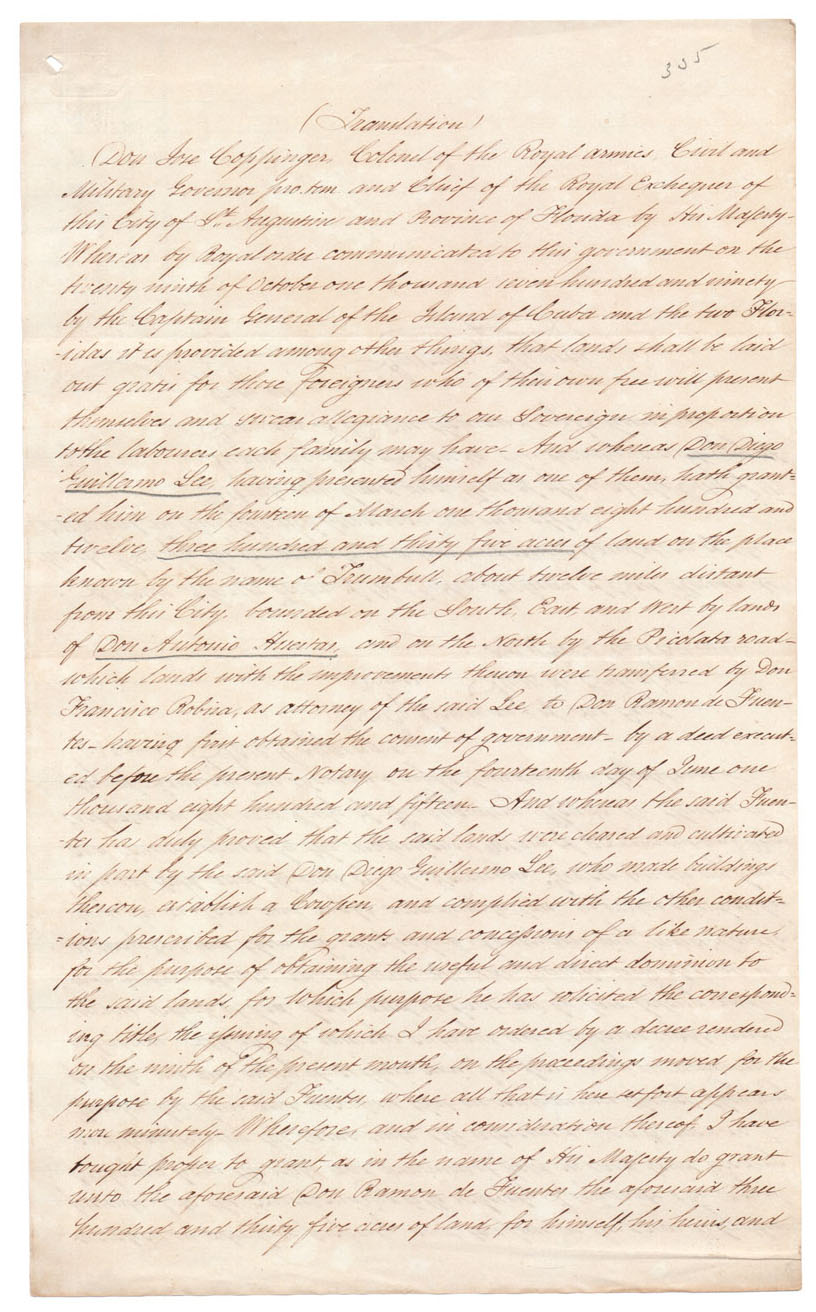 335
(Translation)
Don Jose Coppinger, Colonel of the Royal armies, Civil and
Military Governor pro. tem. and Chief of the Royal Exchequer of
this City of St. Augustine and Province of Florida by His Majesty-
Whereas by Royal order communicated to this government on the
twenty ninth of October one thousand seven hundred and ninety
by the Captain General of the Island of Cuba and the two Flor-
-idas it is provided among other things, that lands shall be laid
out gratis for those Foreigners who of their own free will present
themselves and swear allegiance to our Sovereign in proportion
to the labourers each family may have- And whereas Don Diego
Guillermo Lee, having presented himself as one of them, hath grant=
-ed him on the fourteen of March one thousand eight hundred and
twelve, three hundred and thirty five acres of land on the place
known by the name of Trumbull, about twelve miles distant
from this City, bounded on the South, East, and West by lands
of Don Antonio Huertas, and on the North by the Picolata road-
which lands with the improvements thereon were transferred by Don
Francisco Robira, as attorney of the said Lee, to Don Ramon de Fuen-
tes- having first obtained the consent of government- by a deed execut-
ed before the present Notary on the fourteenth day of June one
thousand eight hundred and fifteen- And whereas the said Fuen-
-tes has duly proved that the said lands were cleared and cultivated
in part by the said Don Diego Guillermo Lee, who made buildings
thereon, establish a Cowpen, and complied with the other condit=
=ions prescribed for the grants and concessions of a like nature,
for the purpose of obtaining the useful and direct dominion to
the said lands, for which purpose he has solicited the correspond=
ing title, the issuing of which I have ordered by a decree rendered
on the ninth of the present month, on the proceedings moved for the
purpose by the said Fuentes, where all that is here set fort appears
more minutely- Wherefore, and in consideration thereof, I have
tought proper to grant, as in the name of His Majesty do grant
unto the aforesaid Don Ramon de Fuentes the aforesaid three
hundred and thirty five acres of land, for himself, his heirs, and